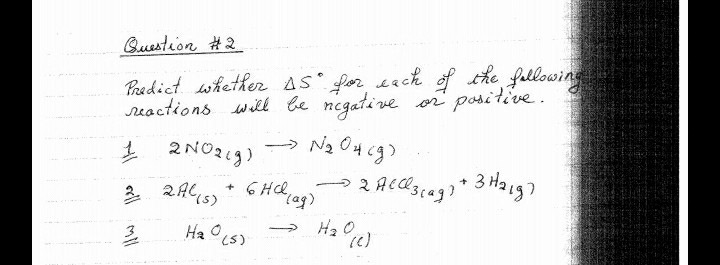 Question #2
Predict whether ΔS° for each of the following
reactions will be negative or positive.
1 2NO2(g) → N2O4(g)
2 2Al(s) + 6HCl(aq) → 2AlCl3(aq) + 3H2(g)
3 H2O(s) → H2O(l)